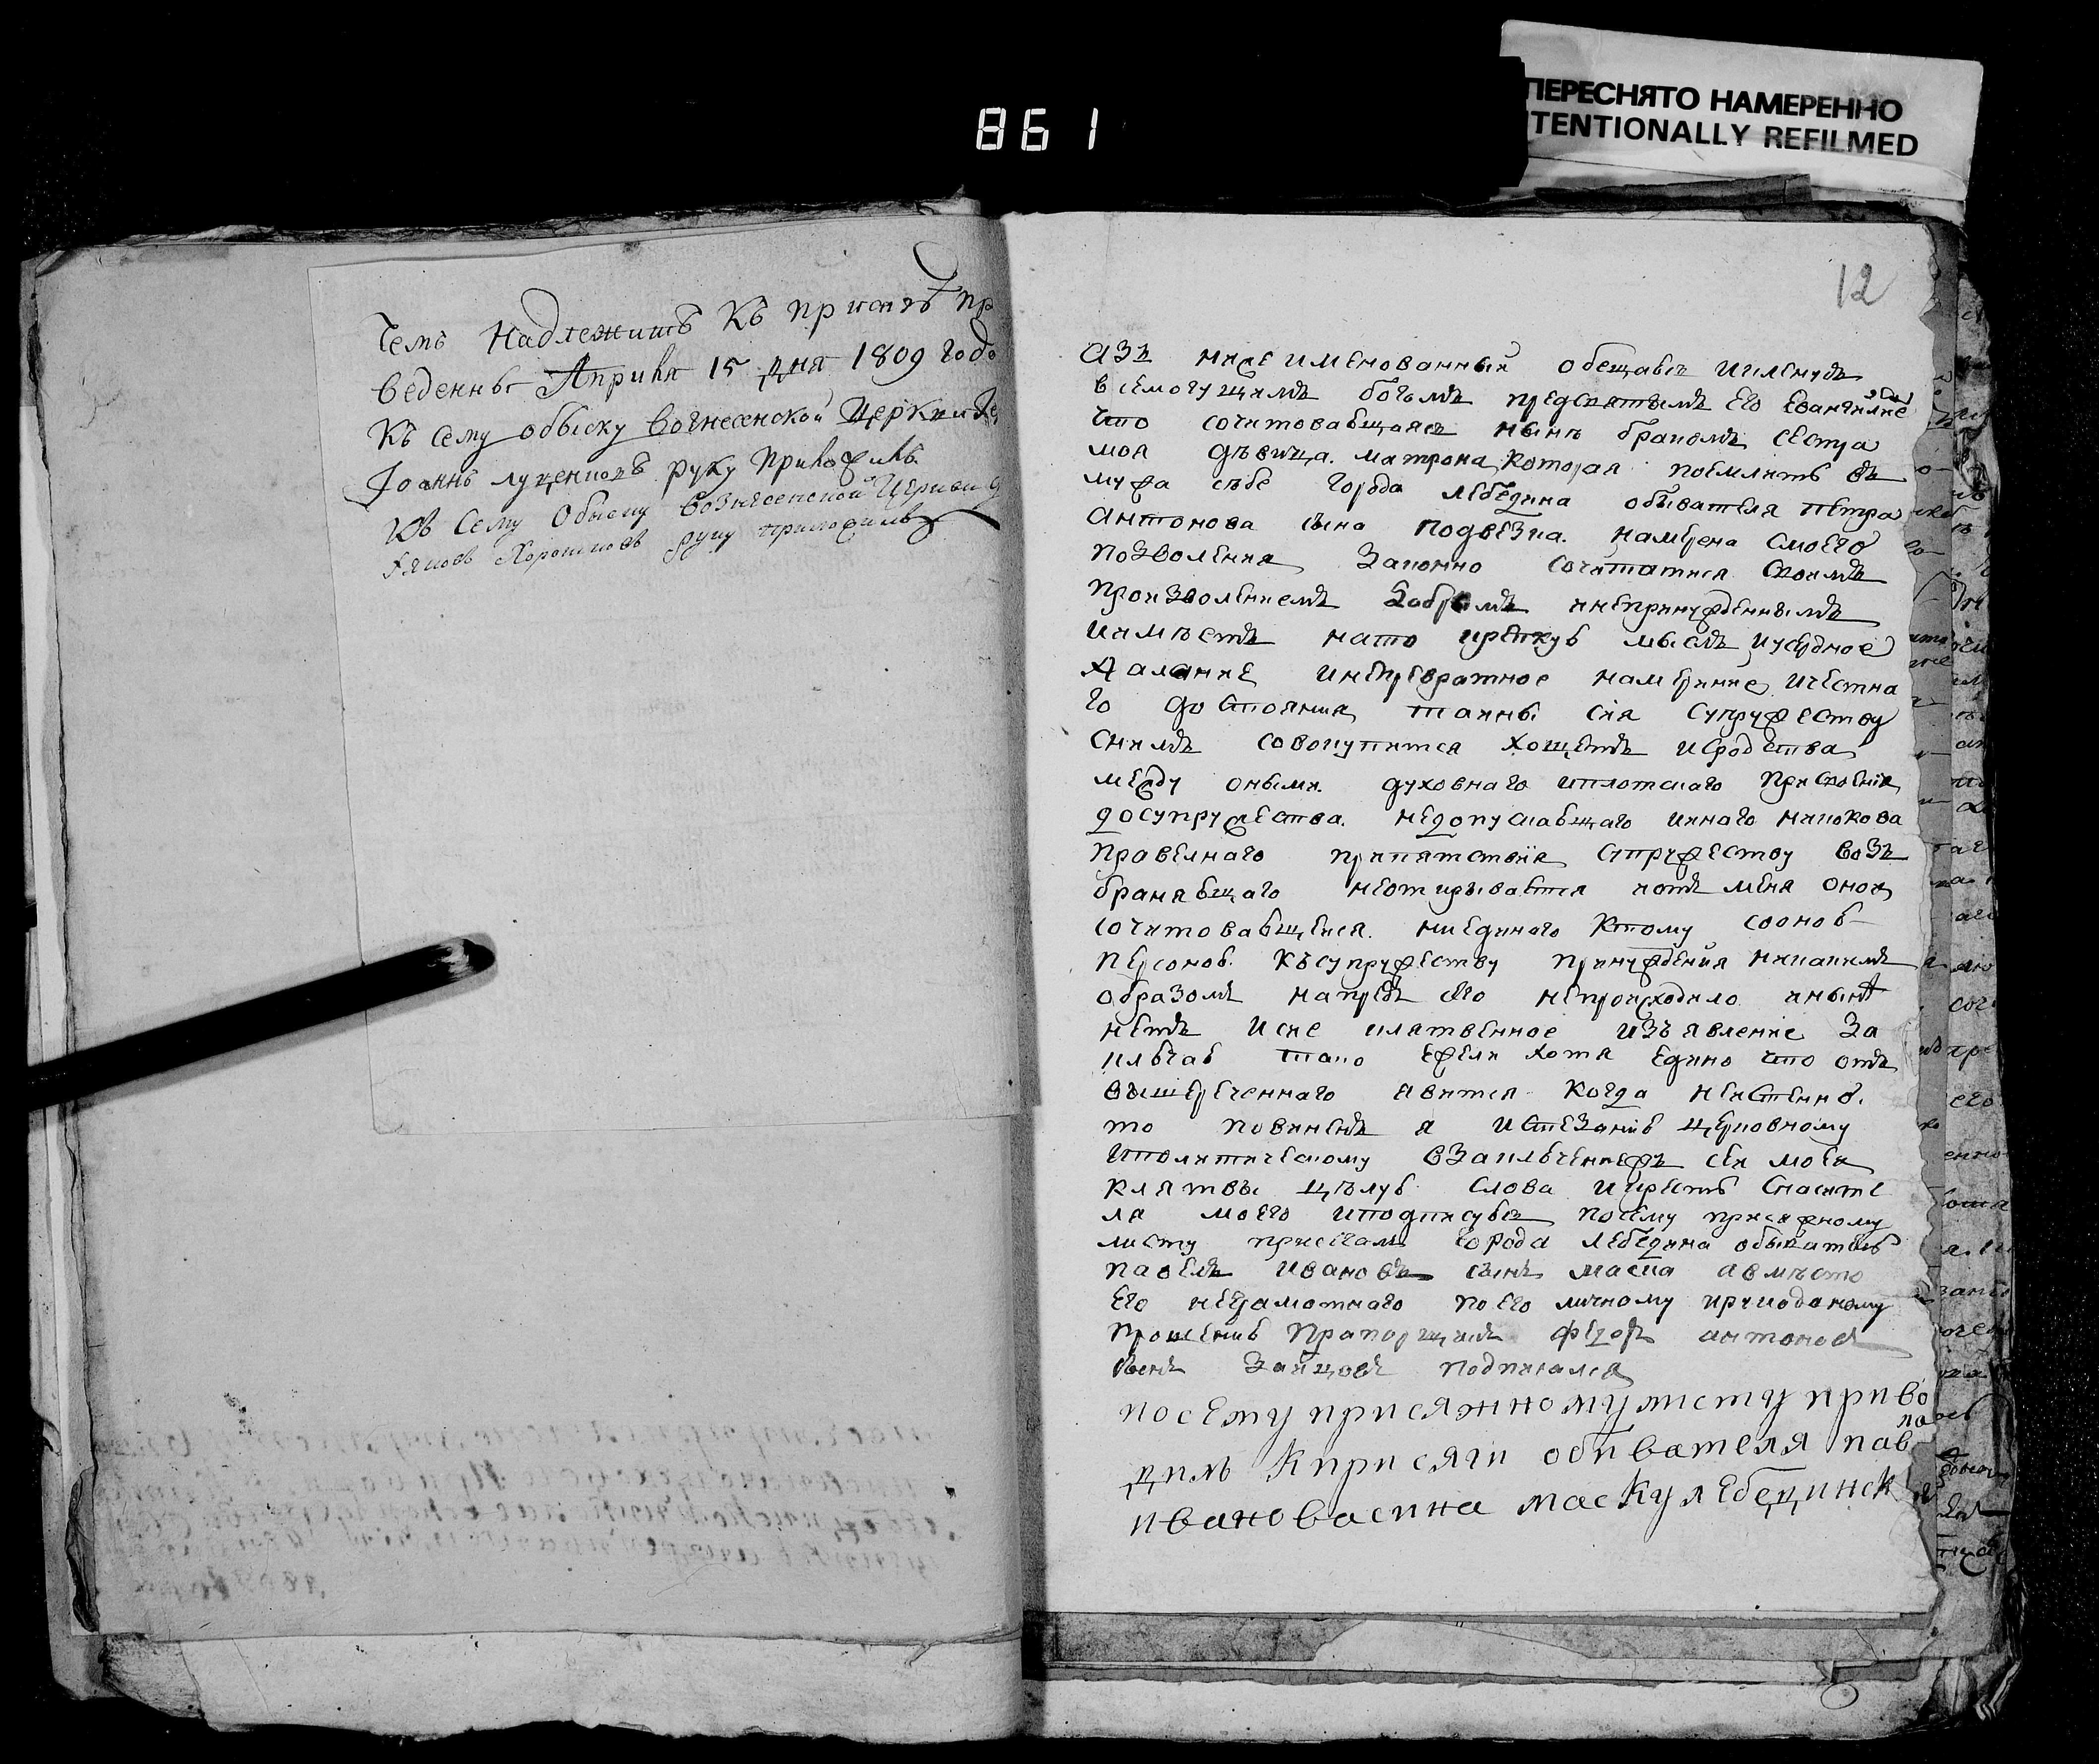 861
ПЕРЕСНЯТО НАМЕРЕННО
TENTIONALLY REFILMED
чемъ надлежитъ къ присягѣ пр
ведены Априля 15 дня 1809 года
Къ сему обыску вознесенской Церкви
Іоаннъ луценковъ руку приложилъ
Къ Сему Обыску Вознесенской Церкви
Яковъ Хорошковъ руку приложилъ
12
азъ нижеименованный обещаюсъ иклянусъ
всемогущимъ богомъ предсвятымъ его Евангилие
что сочитовающаяся нынѣ бракомъ сестра
моя дѣвица матрона которая поемлитъ въ
мужа себе города лебедина обывателя петра
антонова сына подвезка намѣрена смоего
позволения законно сочитатися своимъ
произволениемъ добримъ инепринужденнымъ
иимѣетъ нато крепкую мысль иусердное
желание инепревратное намѣрение ичестна
го достояния тайны сия супружеству
снимъ совокупитися хощетъ исродства
между оными духовнаго иплотскаго присвоения
досупружества недопускающаго иинаго никокова
правелнаго припятствия супружеству возъ
браняющаго неоткрывается иотъ меня оной
сочитовающейся ниединаго ктому соеною
персоною къ супружеству принуждения никакимъ
образомъ напредъ сего непроисходило инынѣ
нетъ исие клятвенное изъявление за
ключаю тако ежели хотя едино что отъ
вышереченнаго явится когда неистенно
то повиненъ я истезанию церковному
иполитическому взаключениежъ сея моея
клятвы цѣлую слова икрестъ спасите
ля моего иподписуюсъ посему присяжному
листу присягалъ города лебедина обыватель
павелъ ивановъ сынъ маска авмѣсто
его неграмотнаго поего личному ирукоданому
прошению прапорщикъ федоръ антоновъ
сынъ Зайцовъ подписался
посему присяжному листу приво
дилъ Кприсяги обивателя пав
ла
ивановасина маску лебединск